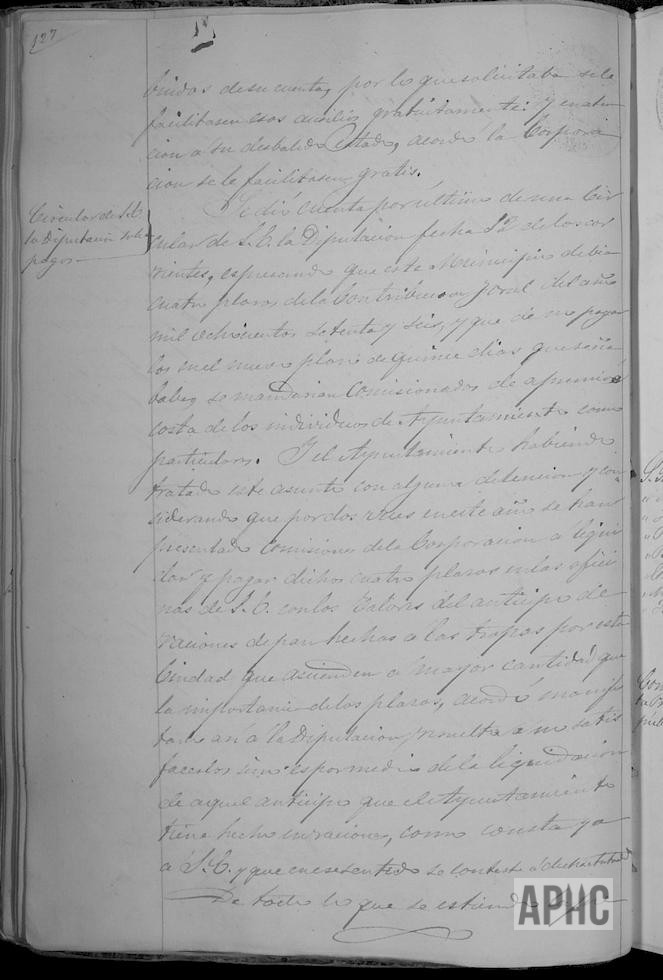 127
buidas de su cuenta, por lo que solicitaba se le
facilitasen esos auxilios gratuitamente: Y en aten
cion a su desbalido estado, acordó la Corpora
cion se le facilitasen gratis.
Circular de S.E.
la Diputacion sobre
pagos
Se dió cuenta por ultimo de una Cir
cular de S.E. la Diputacion fecha 12 de los cor
rientes, espresando que este Municipio debia
cuatro plazos de la Contribucion foral del año
mil ochocientos setenta y seis, y que de no pagar
los en el nuevo plazo de quince dias que seña
laba, se mandarian Comisionados de apremio a
costa de los individuos de Ayuntamiento como
particulares. Y el Ayuntamiento habiendo
tratado este asunto con alguna detencion y con
siderando que por dos veces en este año se han
presentado Comisiones de la Corporacion a liqui
dar y pagar dichos cuatro plazos en las ofici
nas de S.E. con los valores del anticipo de
raciones de pan hechas a las tropas por esta
Ciudad que ascienden a mayor cantidad que
la importancia de los plazos, acordó manifes
tar a la Diputacion, resuelta a no satis
facerlos sino es por medio de la liquidacion
de aquel anticipo que el Ayuntamiento
tiene hecho en raciones, como consta ya
a S.E. y que en ese sentido se conteste a dicha
De todo lo que se estiende
APHC